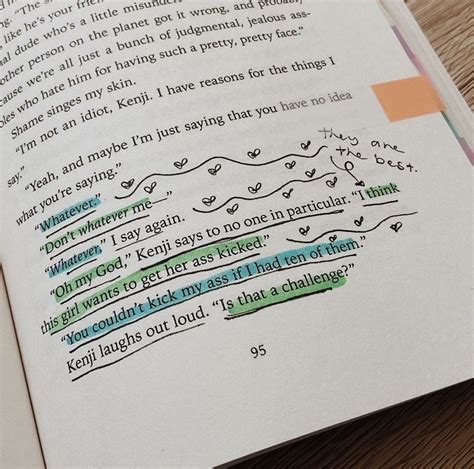 ng. "The s
like he's your frien
al dude who's a little misunders
other person on the planet got it wrong, and probably
cause we're all just a bunch of judgmental, jealous ass-
oles who hate him for having such a pretty, pretty face."
Shame singes my skin.
"I'm not an idiot, Kenji. I have reasons for the things I
say."
"Yeah, and maybe I'm just saying that you have no idea
what you're saying."
they are
the best.
"Whatever."
"Don't whatever me—"
"Whatever," I say again.
"Oh my God," Kenji says to no one in particular. "I think
this girl wants to get her ass kicked."
"You couldn't kick my ass if I had ten of them."
Kenji laughs out loud. "Is that a challenge?"
95